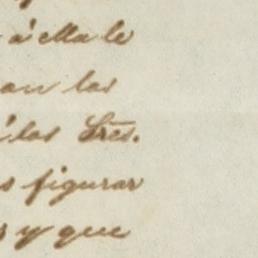 á ella le
an las
á las Sres.
s figurar
s y que